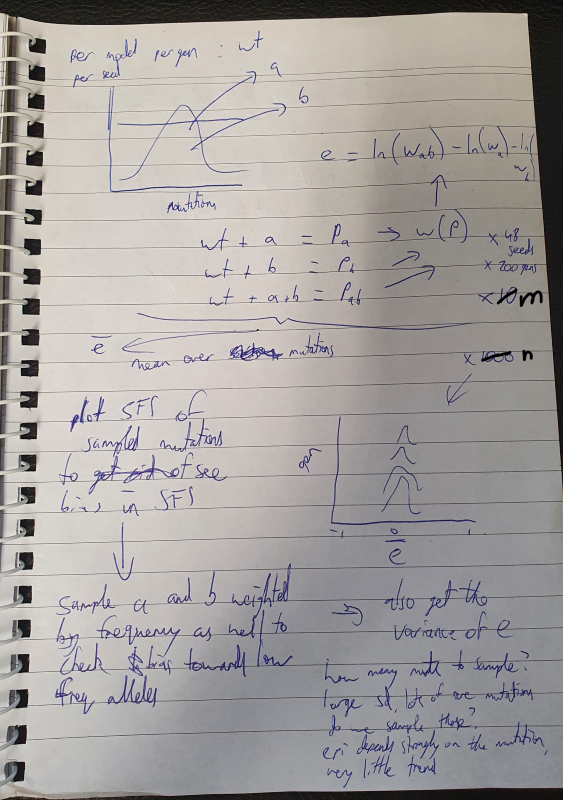 Per model per gen : wt
per seed
a
b
mutations
e = ln(wab) - ln(wa) - ln(wb)
wt + a = Pa → w(P) × 48 seeds
wt + b = Pb × 200 gens
wt + a+b = Pab × m
e
mean over mutations
× n
plot SFS of
sampled mutations
to see
bias in SFS
-1 0 1
e
Sample a and b weighted
by frequency as well to
check bias toward low
freq alleles
→ also get the
variance of e
how many muts to sample?
large sd, lots of rare mutations
do we sample those?
depends strongly on the mutation,
very little trend